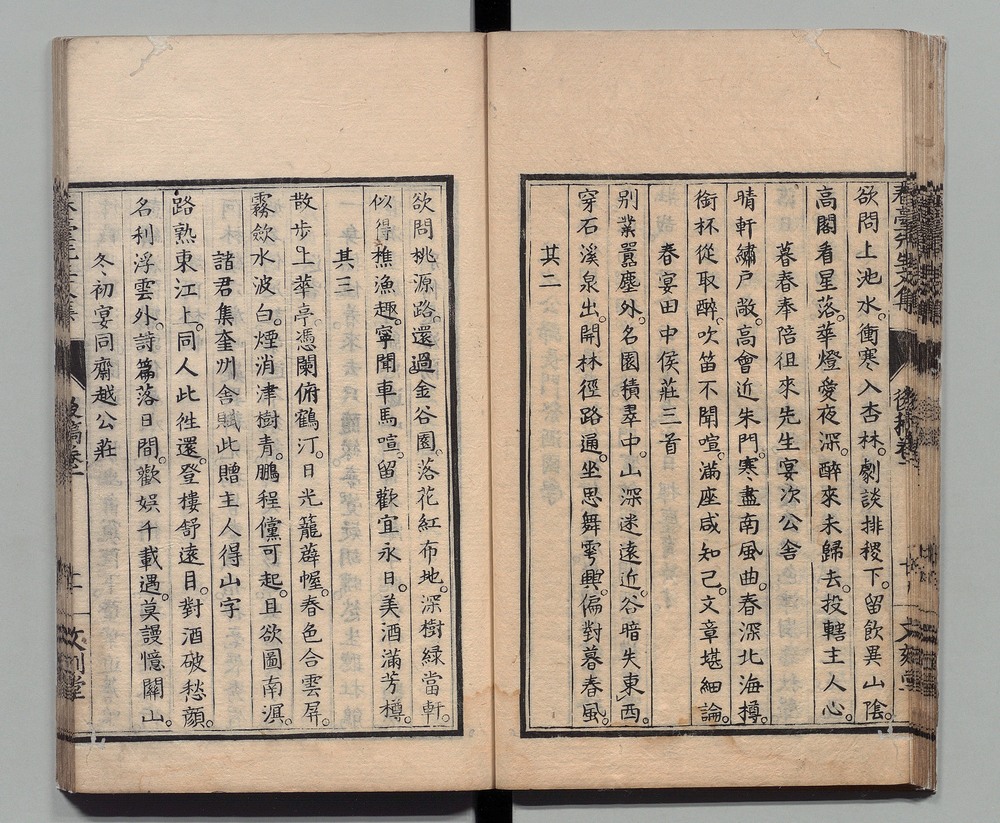 欲問上池水。衝寒入杏林。劇談排稷下。留飲異山陰。
高閣看星落。華燈愛夜深。醉來未歸去。投轄主人心。
暮春奉陪徂來先生宴次公舍
晴軒繡戶敞。高會近朱門。寒盡南風曲。春深北海樽。
銜杯從取醉。吹笛不聞喧。滿座咸知己。文章堪細論。
春宴田中侯莊三首
別業囂塵外。名園積翠中。山深迷遠近。谷暗失東西。
穿石溪泉出。開林徑路通。坐思舞雩興。偏對暮春風。
其二
欲問桃源路。還過金谷園。落花紅布地。深樹綠當軒。
似得樵漁趣。寧聞車馬喧。留歡宜永日。美酒滿芳樽。
其三
散步上華亭。憑闌俯鶴汀。日光籠薜幄。春色合雲屏。
霧斂水波白。煙消津樹青。鵬程儻可起。且欲圖南溟。
諸君集奎洲舍賦此贈主人得山字
路熟東江上。同人此往還。登樓舒遠目。對酒破愁顏。
名利浮雲外。詩篇落日間。歡娛千載遇。莫謾憶關山。
冬初宴同齋越公莊